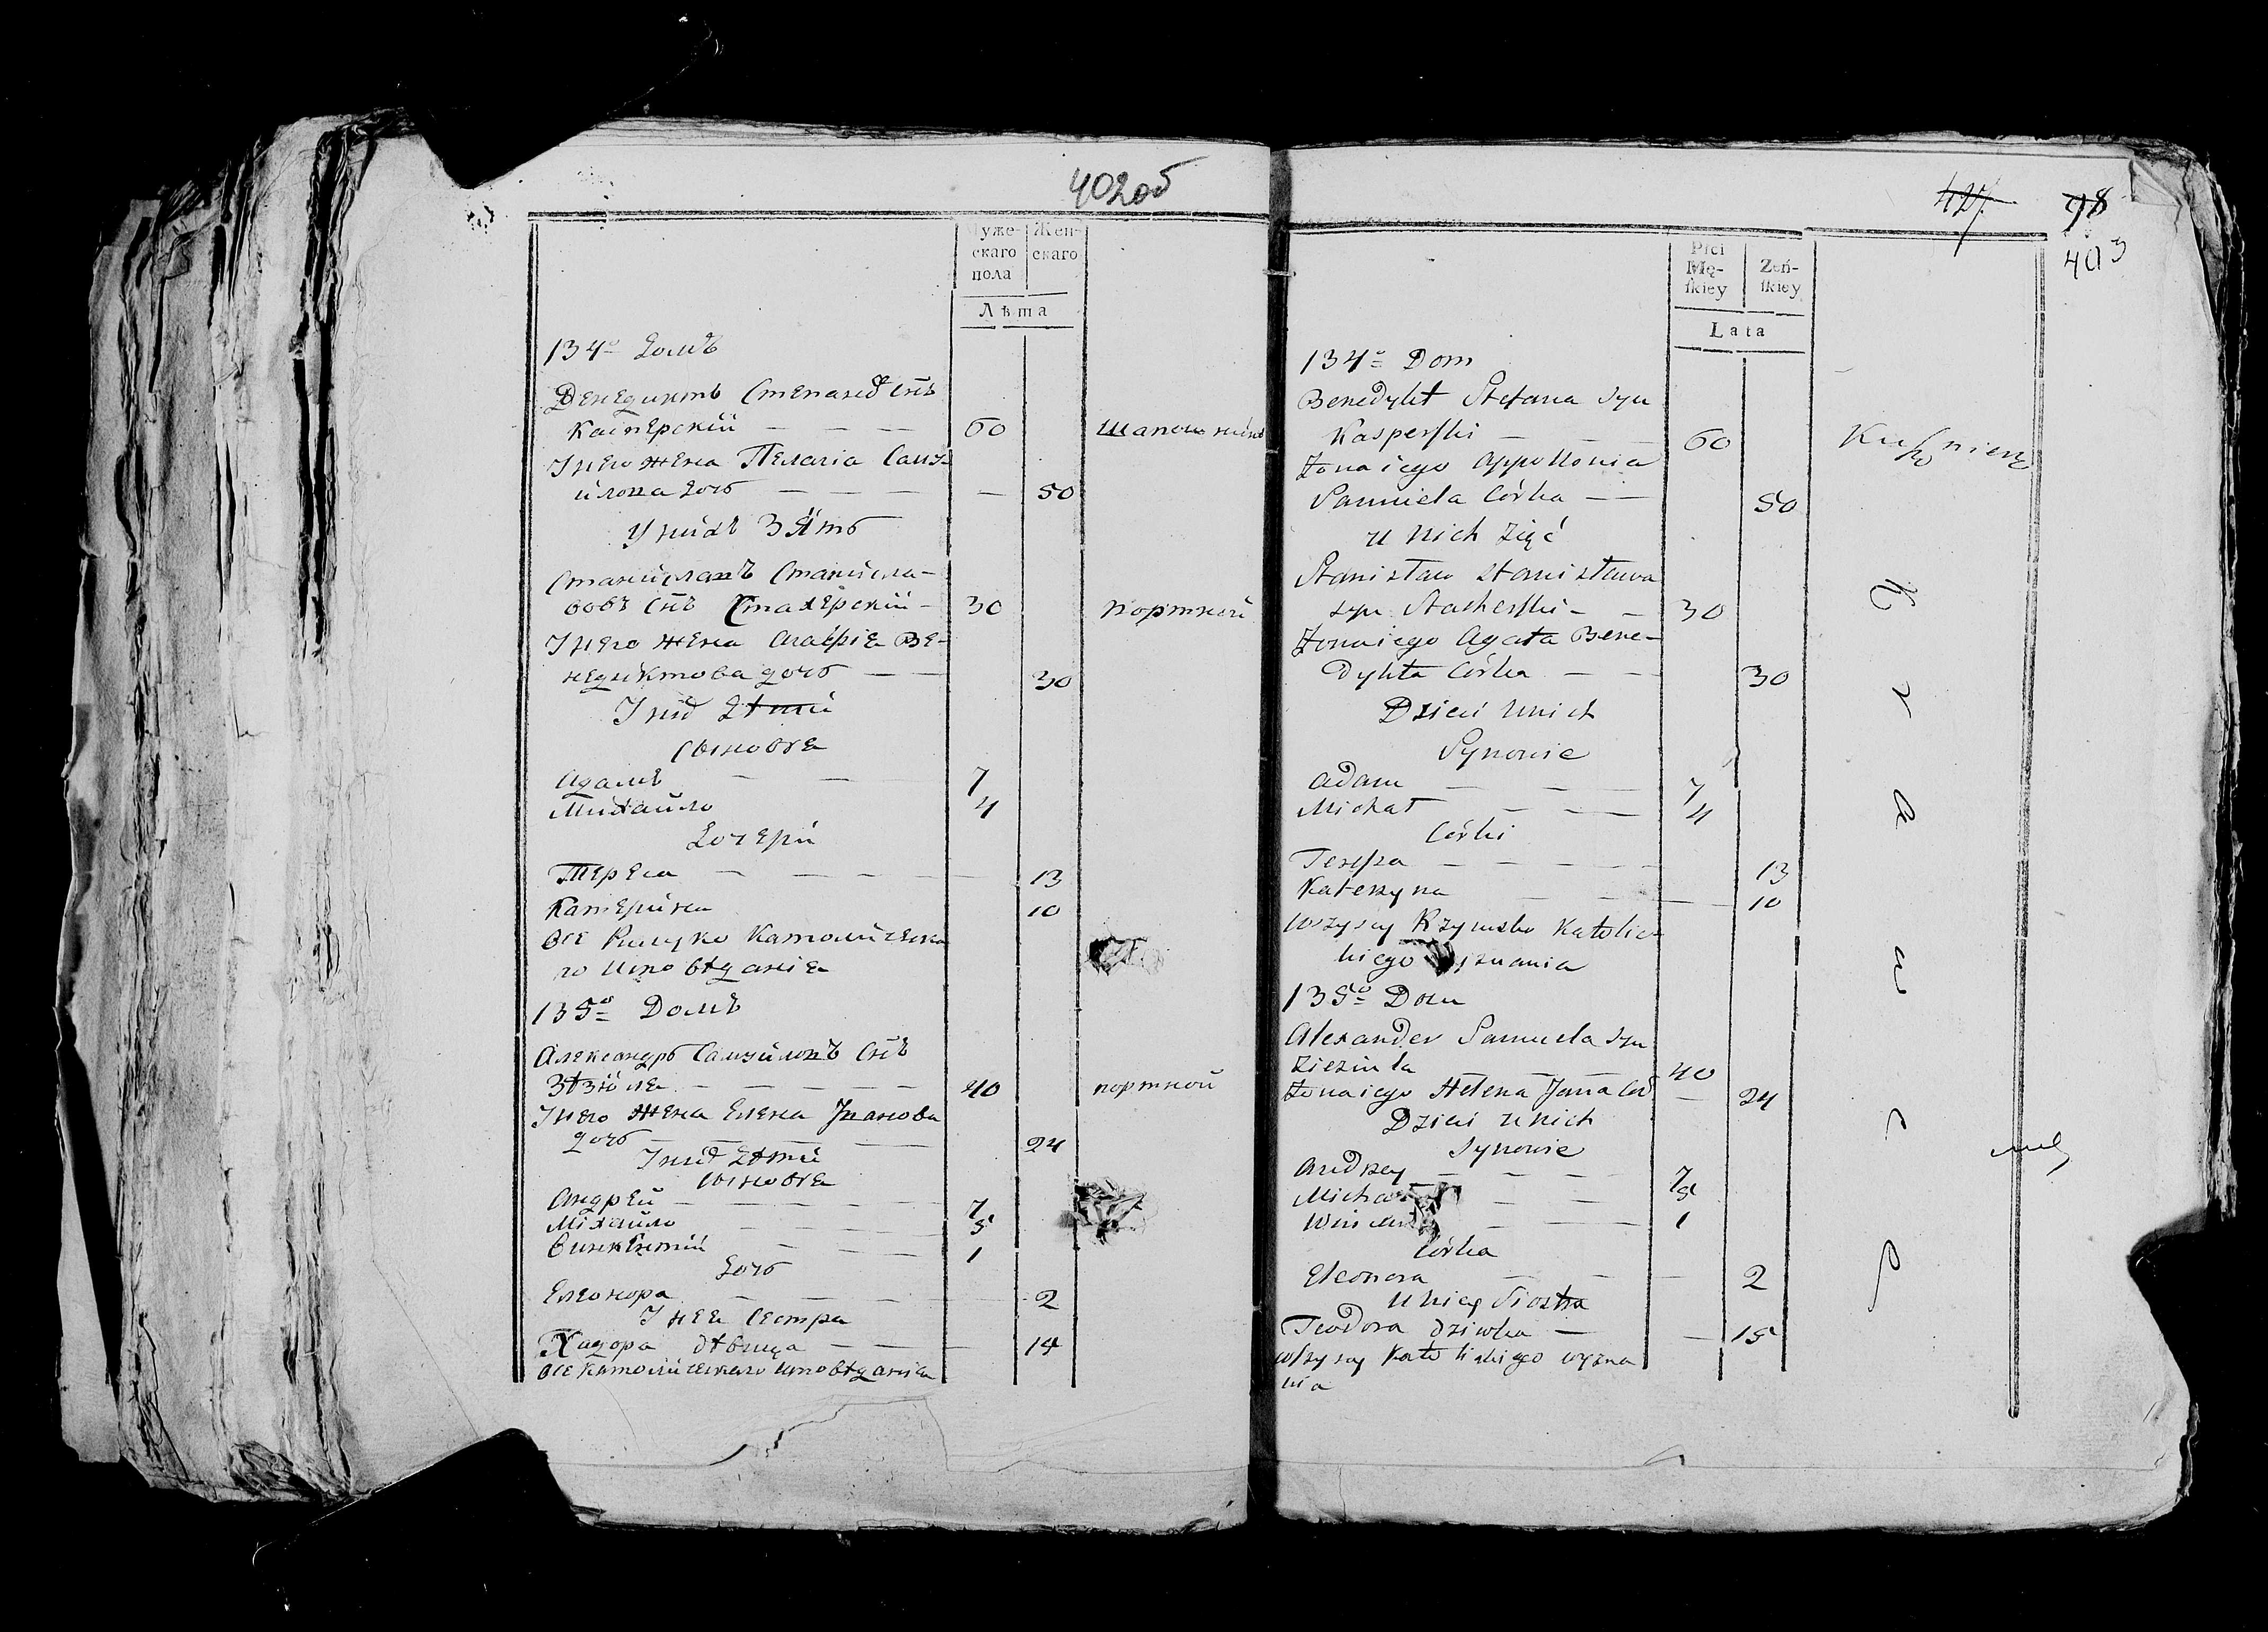 402об
Муже-
скаго
пола
Жен-
скаго
Лѣта
134о Домъ
Бенедиктъ Степановъ снъ
Касперскій — — — 60 шапошникъ
У него жена Пелагіа Саму-
илова дочь — — — — 50
У нихъ Зять
Станиславъ Станисла-
вовъ снъ Стахерскій — 30 портной
У него жена Агафіа Бе-
недиктова дочь — — 30
У нихъ дѣти
Сыновѣ
Адамъ — — 7
Михайло 4
Дочери
Тереса — — — — — 13
Катерина 10
Все Римско Католическа
го исповѣданіа
135о Домъ
Александръ Самуиловъ снъ
Зѣзюля — — — — — 40 портной
У него жена Елена Иванова
дочь — — — — 24
У нихъ дѣти
Сыновѣ
Андрей — — — — 7
Михайло — — — — 5
Винкентій — — — 1
Дочь
Елеонора — — — — 2
У нее сестра
Хадора дѣвица — — — 14
Все католическаго исповѣданіа
427 98
403
Płci
Mę-
ſkiey
Zeń-
ſkiey
Lata
134o Dom
Benedykt Stefana syn
Kasperſki — — — 60 Kuſznierz
Żona iego Appollonia
Samuela Córka — — 50
u nich zięć
Stanisław Stanisława
syn Stacherſki — — 30
Żona iego Agata Bene-
dykta Córka — — 30
Dzieci u nich
Synowie
Adam — — — 7
Michał — — — 4
Córki
Tereſsa — — — — — 13
Katerzyna — — — — 10
Wszyscy Rzymsko Katolic-
kiego wyznania
135o Dom
Alexander Samuela syn
Zieziula — — — 40
Żona iego Helena Jana Cór — 24
Dzieci u nich
Synowie
Andrzey — — — 7
Micha — — 5
Win — — 1
Córka
Eleonora — — — 2
u niey Siostra
Teodora dziwka — — 15
wſzyscy Katolickiego wyzna
nia